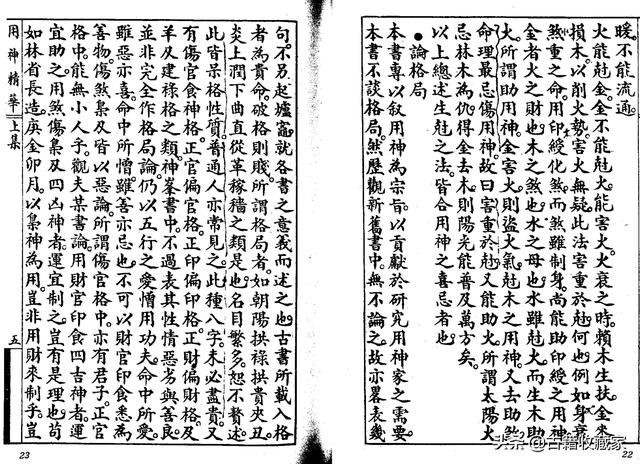 暖。不能流通。
火能尅金。金不能尅火。能害火。火衰之時。賴木生扶。金來
損木。以削火勢。害火無疑。此法害重於尅。何也。例如身衰
煞重之命。用印綬化煞。而煞雖制身。尚能助印綬之用神。
金者火之財也。木之煞也。水之母也。水雖尅火。而生木助
火。所謂助用神。金害火。則盜火氣。尅木之用神。又去助煞。
命理最忌傷用神。故曰害重於尅。又能助火。所謂太陽火
忌林木為仇。得金去木。則陽光能普及萬方矣。
以上總述生尅之法。皆合用神之喜忌者也。
●論格局
本書專以敘用神為宗旨。以貢獻於研究用神家之需要。
本書不談格局。然歷觀新舊書中。無不論之。故亦畧表幾
22
句。不另起爐竈。就各書之意義而述之也。古書所載入格
者為貴命。破格則賤。所謂格局者。如朝陽拱祿拱貴夾丑
炎上潤下曲直從革稼穡之類是也。名目繁多。恕不贅述。
此皆呆格。性質普通人亦常見之。此種八字。未必盡貴。又
有傷官食神格。正官偏官格。正印偏印格。正財偏財格。及
羊及建祿格之類。神峯書中。不過表其性情惡劣與善良。
並非完全作格局論。仍以五行之愛憎用功夫。命中所愛。
雖惡亦喜。命中所憎。雖善亦忌也。不可以財官印食悉為
善物。傷煞梟及皆以惡論。所謂傷官格中。亦有君子。正官
格中。能無小人乎。觀夫某書論用財官印食四吉神者。運
宜助之。用煞傷梟及四凶神者。運宜制之。豈有是理也。苟
如林省長造。庚金卯月。以梟神為用。豈非用財來制乎。豈
用神精華
上集
五
23
头条@古籍收藏家